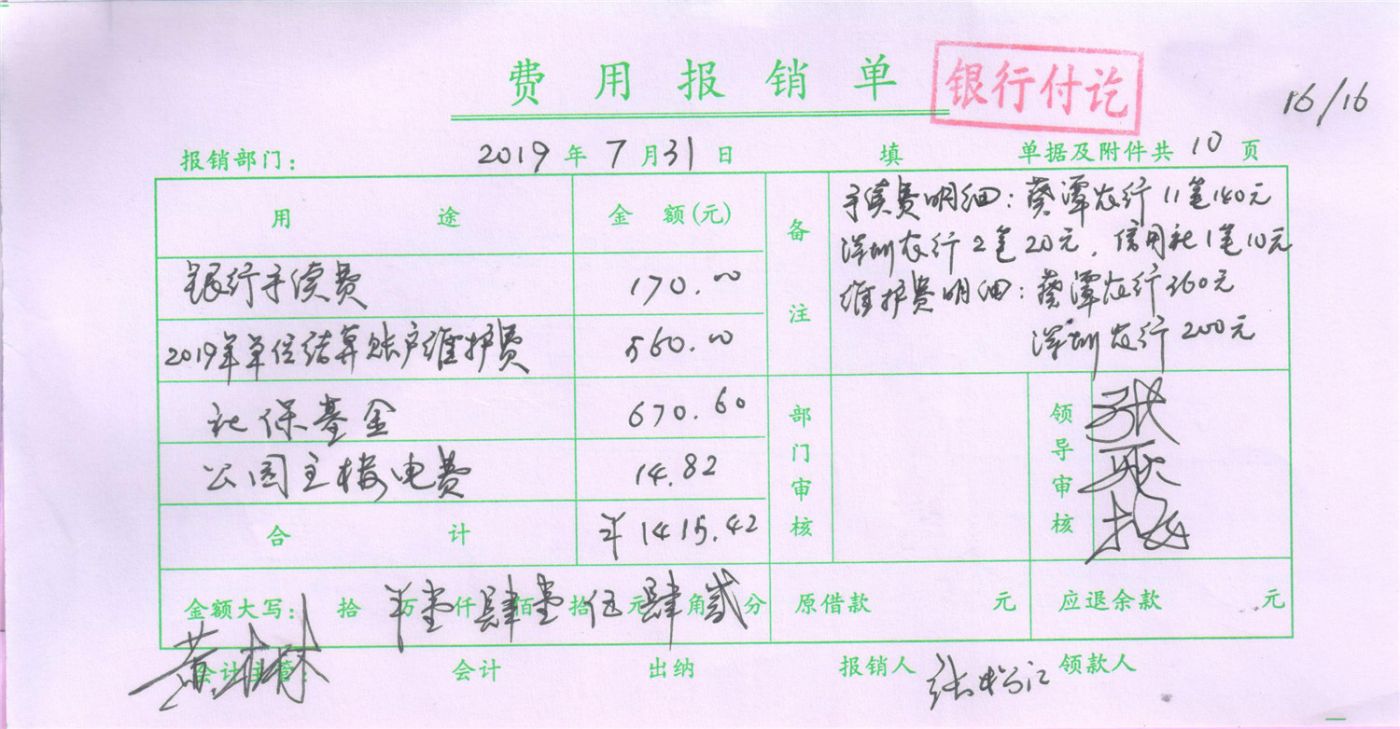 费用报销单
银行付讫
16/16
报销部门： 2019 年 7 月 31 日 填 单据及附件共 10 页
用途 金额(元)
银行手续费 170.00
2019年单位结算账户维护费 560.00
社保基金 670.60
公园主楼电费 14.82
合计 ¥1415.42
备注
手续费明细：葵潭农行11笔140元
深圳农行2笔20元，信用社1笔10元
维护费明细：葵潭农行360元
深圳农行200元
部门审核
领导审核
金额大写： 拾 万 ¥壹 仟 肆 佰 壹 拾 伍 元 肆 角 贰 分 原借款 元 应退余款 元
会计主管： 会计 出纳 报销人 领款人